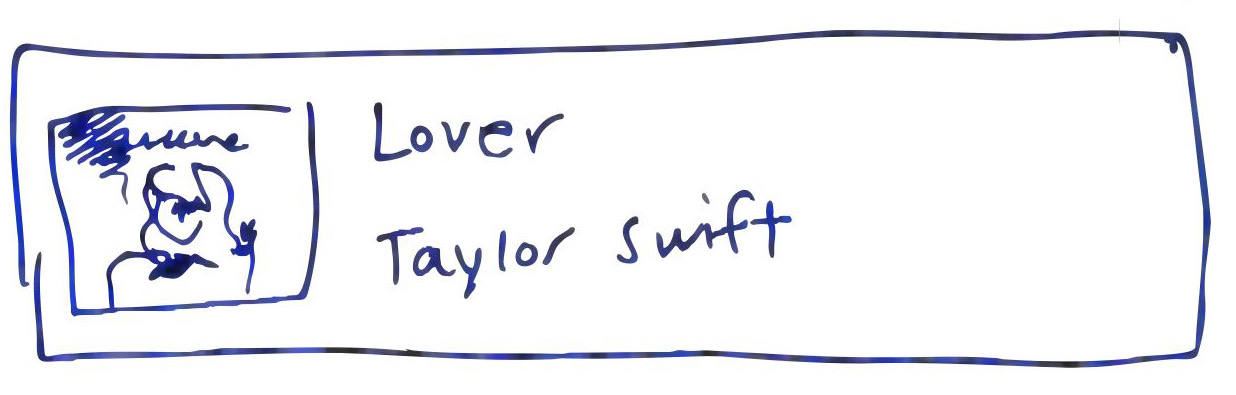 Lover
Taylor Swift